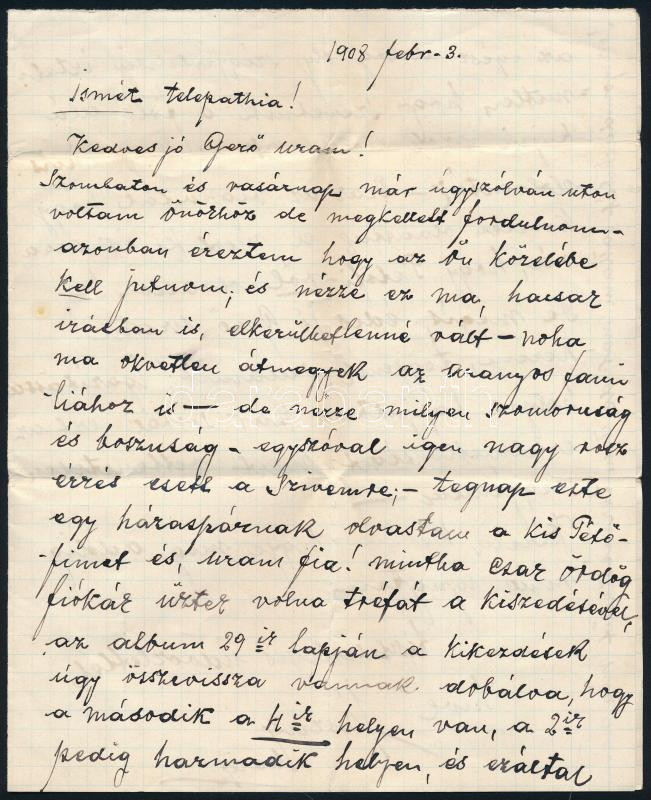 1908 febr. 3.
Ismét telepathia!
Kedves jó Gerő uram!
Szombaton és vasárnap már úgyszólván uton
voltam Önökhöz de megkellett fordulnom –
azonban éreztem hogy az Ön közelébe
kell jutnom; és nézze ez ma, hacsak
irásban is, elkerülhetlenné vált – noha
ma okvetlen átmegyek az aranyos fami
liához is — de nézze milyen szomoruság
és boszuság – egyszóval igen nagy rosz
érzés esett a szivemre; – tegnap este
egy házaspárnak olvastam a kis Pető-
fimet és, uram fia! mintha csak ördög
fiókák űztek volna tréfát a kiszedésével,
az album 29 ik lapján a kikezdések
úgy összevissza vannak dobálva, hogy
a második a 4 ik helyen van, a 2 ik
pedig harmadik helyen, és ezáltal